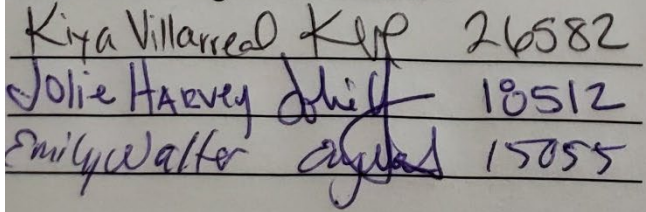 Kiya Villarreal 26582
Jolie Harvey 18512
Emily Walter 15055